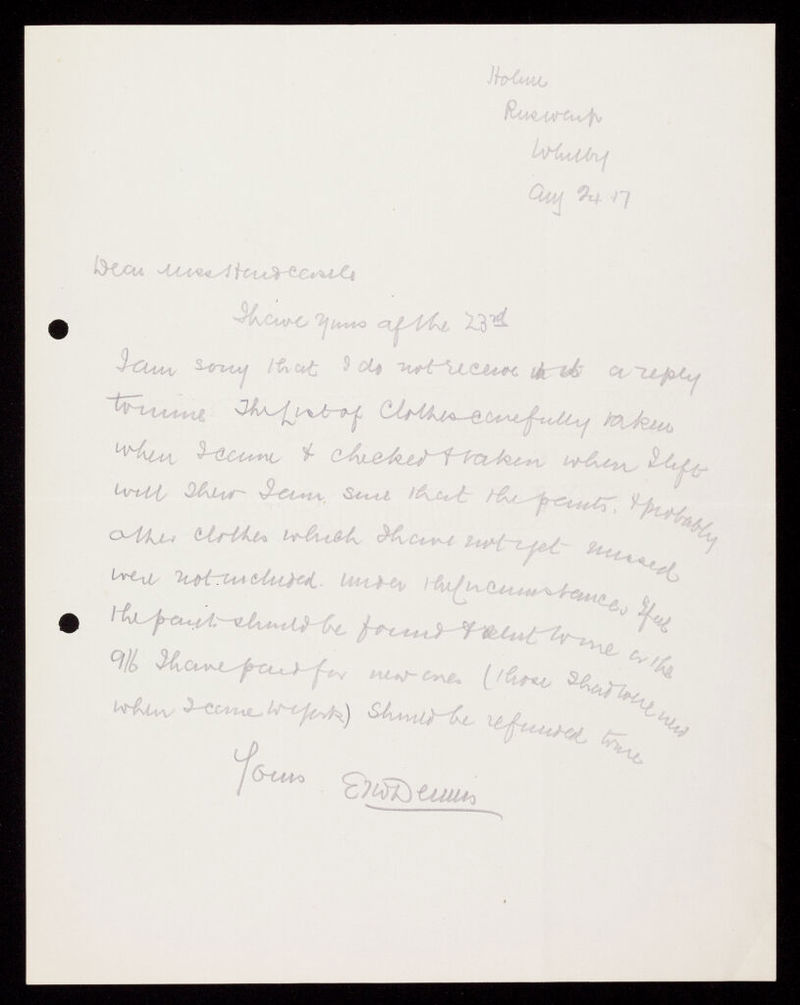 Holme
Ruswarp
Whitby
Aug 24 17
Dear Miss Hardcastle
I have yours of the 23rd
I am sorry that I do not receive a reply
to mine. The List of Clothes carefully taken
when I came & checked & taken when I left
will shew I am sure that the pants. & probably
other clothes which I have not yet missed
were not included. Under the circumstances I feel
the pants should be found & sent to me or the
9/6 I have paid for new ones (those I had were new
when I came to York) should be refunded to me
Yours EW Dennis